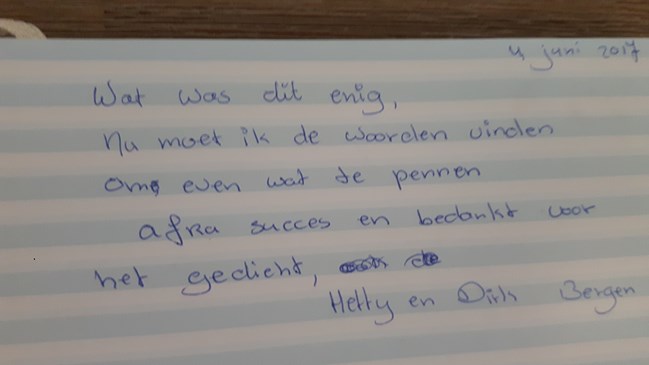 4 juni 2017
Wat was dit enig,
nu moet ik de woorden vinden
om even wat te pennen
afra succes en bedankt voor
het gedicht,
Hetty en Dirk Bergen